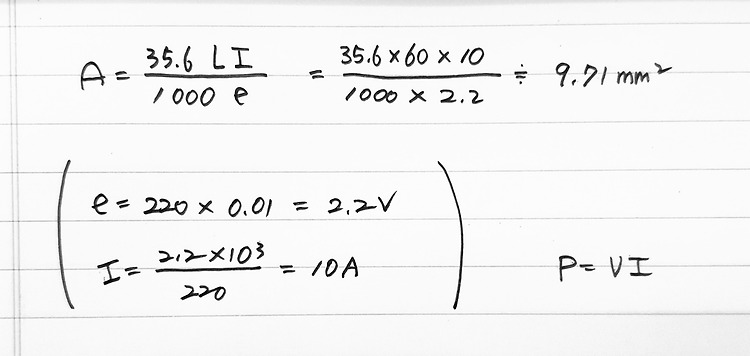 A = 35.6 LI / 1000 e = 35.6 × 60 × 10 / 1000 × 2.2 ≑ 9.71 mm²
e = 220 × 0.01 = 2.2V
I = 2.2 × 10³ / 220 = 10A
P = VI